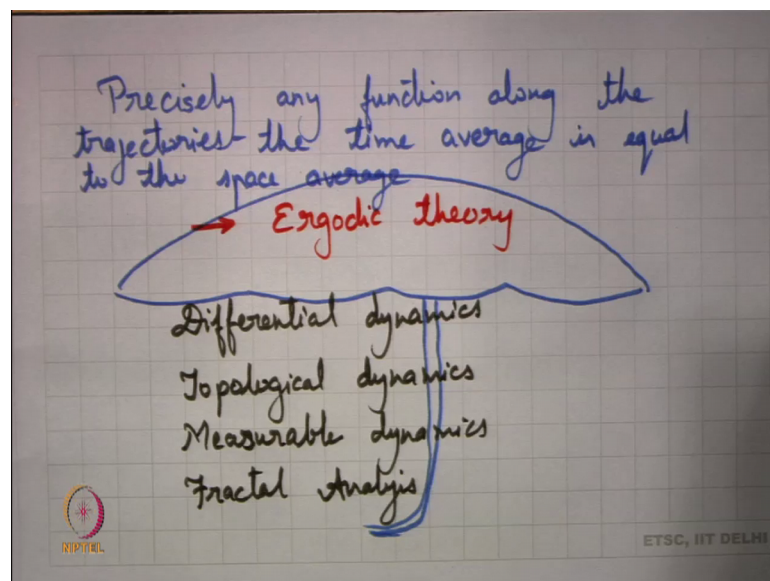 Precisely any function along the
trajectories - the time average is equal
to the space average
→ Ergodic theory
Differential dynamics
Topological dynamics
Measurable dynamics
Fractal Analyis
NPTEL
ETSC, IIT DELHI